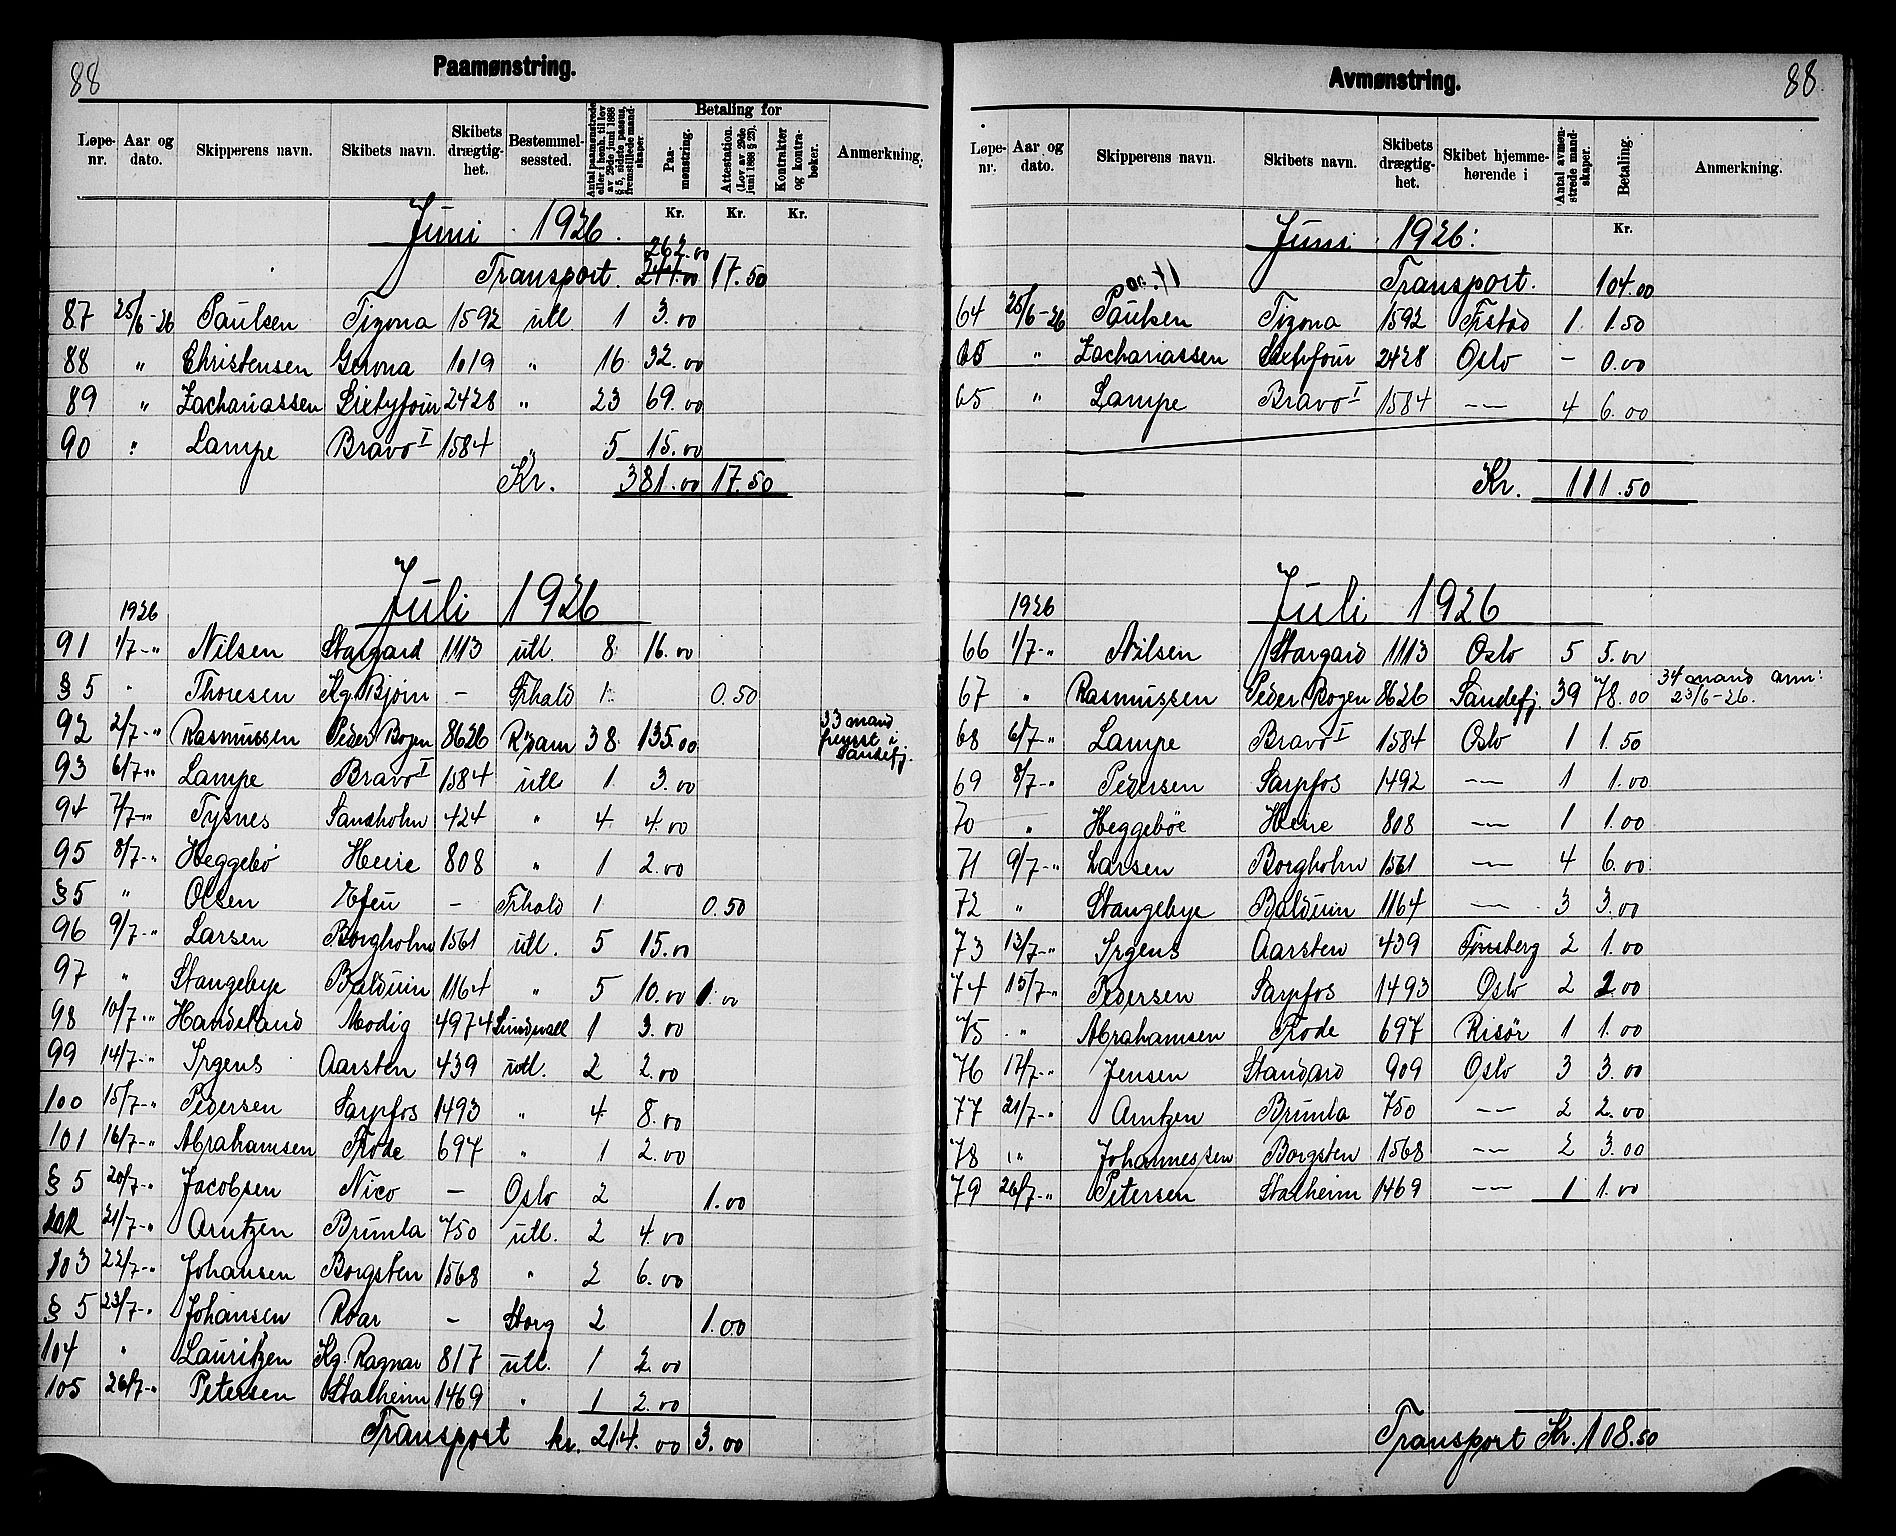 88
Paamønstring.
Løpe-nr. | Aar og dato. | Skipperens navn. | Skibets navn. | Skibets drægtig-het. | Bestemmel-sessted. | Antal paamønstrede eller i henh. til lov av 29de juni 1888 § 5, sidste passus, fremstillede mand-skaper. | Betaling for | Paa-mønstring. | Attestation. (Lov av 29de juni 1888 § 23). | Kontrakter og kontra-bøker. | Anmerkning.
Kr. Kr. Kr.
Juni 1926.
262.00
Transport. 244.00 17.50
87 25/6-26 Paulsen Tizona 1592 utl 1 3.00
88 " Christensen Gerona 1019 " 16 32.00
89 " Zachariassen Sixtyfour 2428 " 23 69.00
90 " Lampe Bravo I 1584 " 5 15.00
Kr. 381.00 17.50
Juli 1926
1926
91 1/7-" Nilsen Stargard 1113 utl. 8 16.00
§ 5 " Thoresen Kg. Bjørn - Frhald 1 0.50
92 2/7-" Rasmussen Peder Bogen 8626 38 135.00 33 mand fremst i Sandefj.
93 6/7-" Lampe Bravo I 1584 utl 1 3.00
94 7/7-" Tysnes Sandholm 424 " 4 4.00
95 8/7-" Heggebø Heire 808 " 1 2.00
§ 5 " Olsen Efeu - Frhald 1 0.50
96 9/7-" Larsen Borgholm 1561 utl. 5 15.00
97 " Stangebye Balduin 1164 " 5 10.00 1.00
98 10/7-" Handeland Modig 4974 Sundsvall 1 3.00
99 14/7-" Irgens Aarsten 439 utl. 2 2.00
100 15/7-" Pedersen Sarpfos 1493 " 4 8.00
101 16/7-" Abrahamsen Frode 697 " 1 2.00
§ 5 20/7-" Jacobsen Nico - Oslo 2 1.00
102 21/7-" Arntzen Brumla 750 utl. 2 4.00
103 22/7-" Johansen Borgsten 1568 " 2 6.00
§ 5 23/7-" Johansen Roar - Sborg 2 1.00
104 " Lauritzen Kg. Ragnar 817 utl. 1 2.00
105 26/7-" Petersen Stalheim 1469 " 1 2.00
Transport kr. 214.00 3.00
88
Avmønstring.
Løpe-nr. | Aar og dato. | Skipperens navn. | Skibets navn. | Skibets drægtig-het. | Skibet hjemme-hørende i | Antal avmøn-strede mand-skaper. | Betaling. | Anmerkning.
Kr.
Juni 1926:
Transport. 104.00
64 25/6-26 Paulsen Tizona 1592 Frstad 1 1.50
65 " Zachariassen Sixtyfour 2428 Oslo - 0.00
65 " Lampe Bravo I 1584 -"- 4 6.00
Kr. 111.50
Juli 1926
1926
66 1/7-" Nilsen Stargard 1113 Oslo 5 5.00
67 " Rasmussen Peder Bogen 8626 Sandefj. 39 78.00 34 mand anm: 23/6-26.
68 6/7-" Lampe Bravo I 1584 Oslo 1 1.50
69 8/7-" Pedersen Sarpfos 1492 -"- 1 1.00
70 " Heggebøe Heire 808 -"- 1 1.00
71 9/7-" Larsen Borgholm 1561 -"- 4 6.00
72 " Stangebye Balduin 1164 -"- 3 3.00
73 13/7-" Irgens Aarsten 439 Tønsberg 2 1.00
74 15/7-" Pedersen Sarpfos 1493 Oslo 2 2.00
75 " Abrahamsen Frode 697 Risør 1 1.00
76 17/7-" Jensen Standard 909 Oslo 3 3.00
77 21/7-" Arntzen Brumla 750 -"- 2 2.00
78 " Johannessen Borgsten 1568 -"- 2 3.00
79 26/7-" Petersen Stalheim 1469 -"- 1 1.00
Transport Kr. 108.50